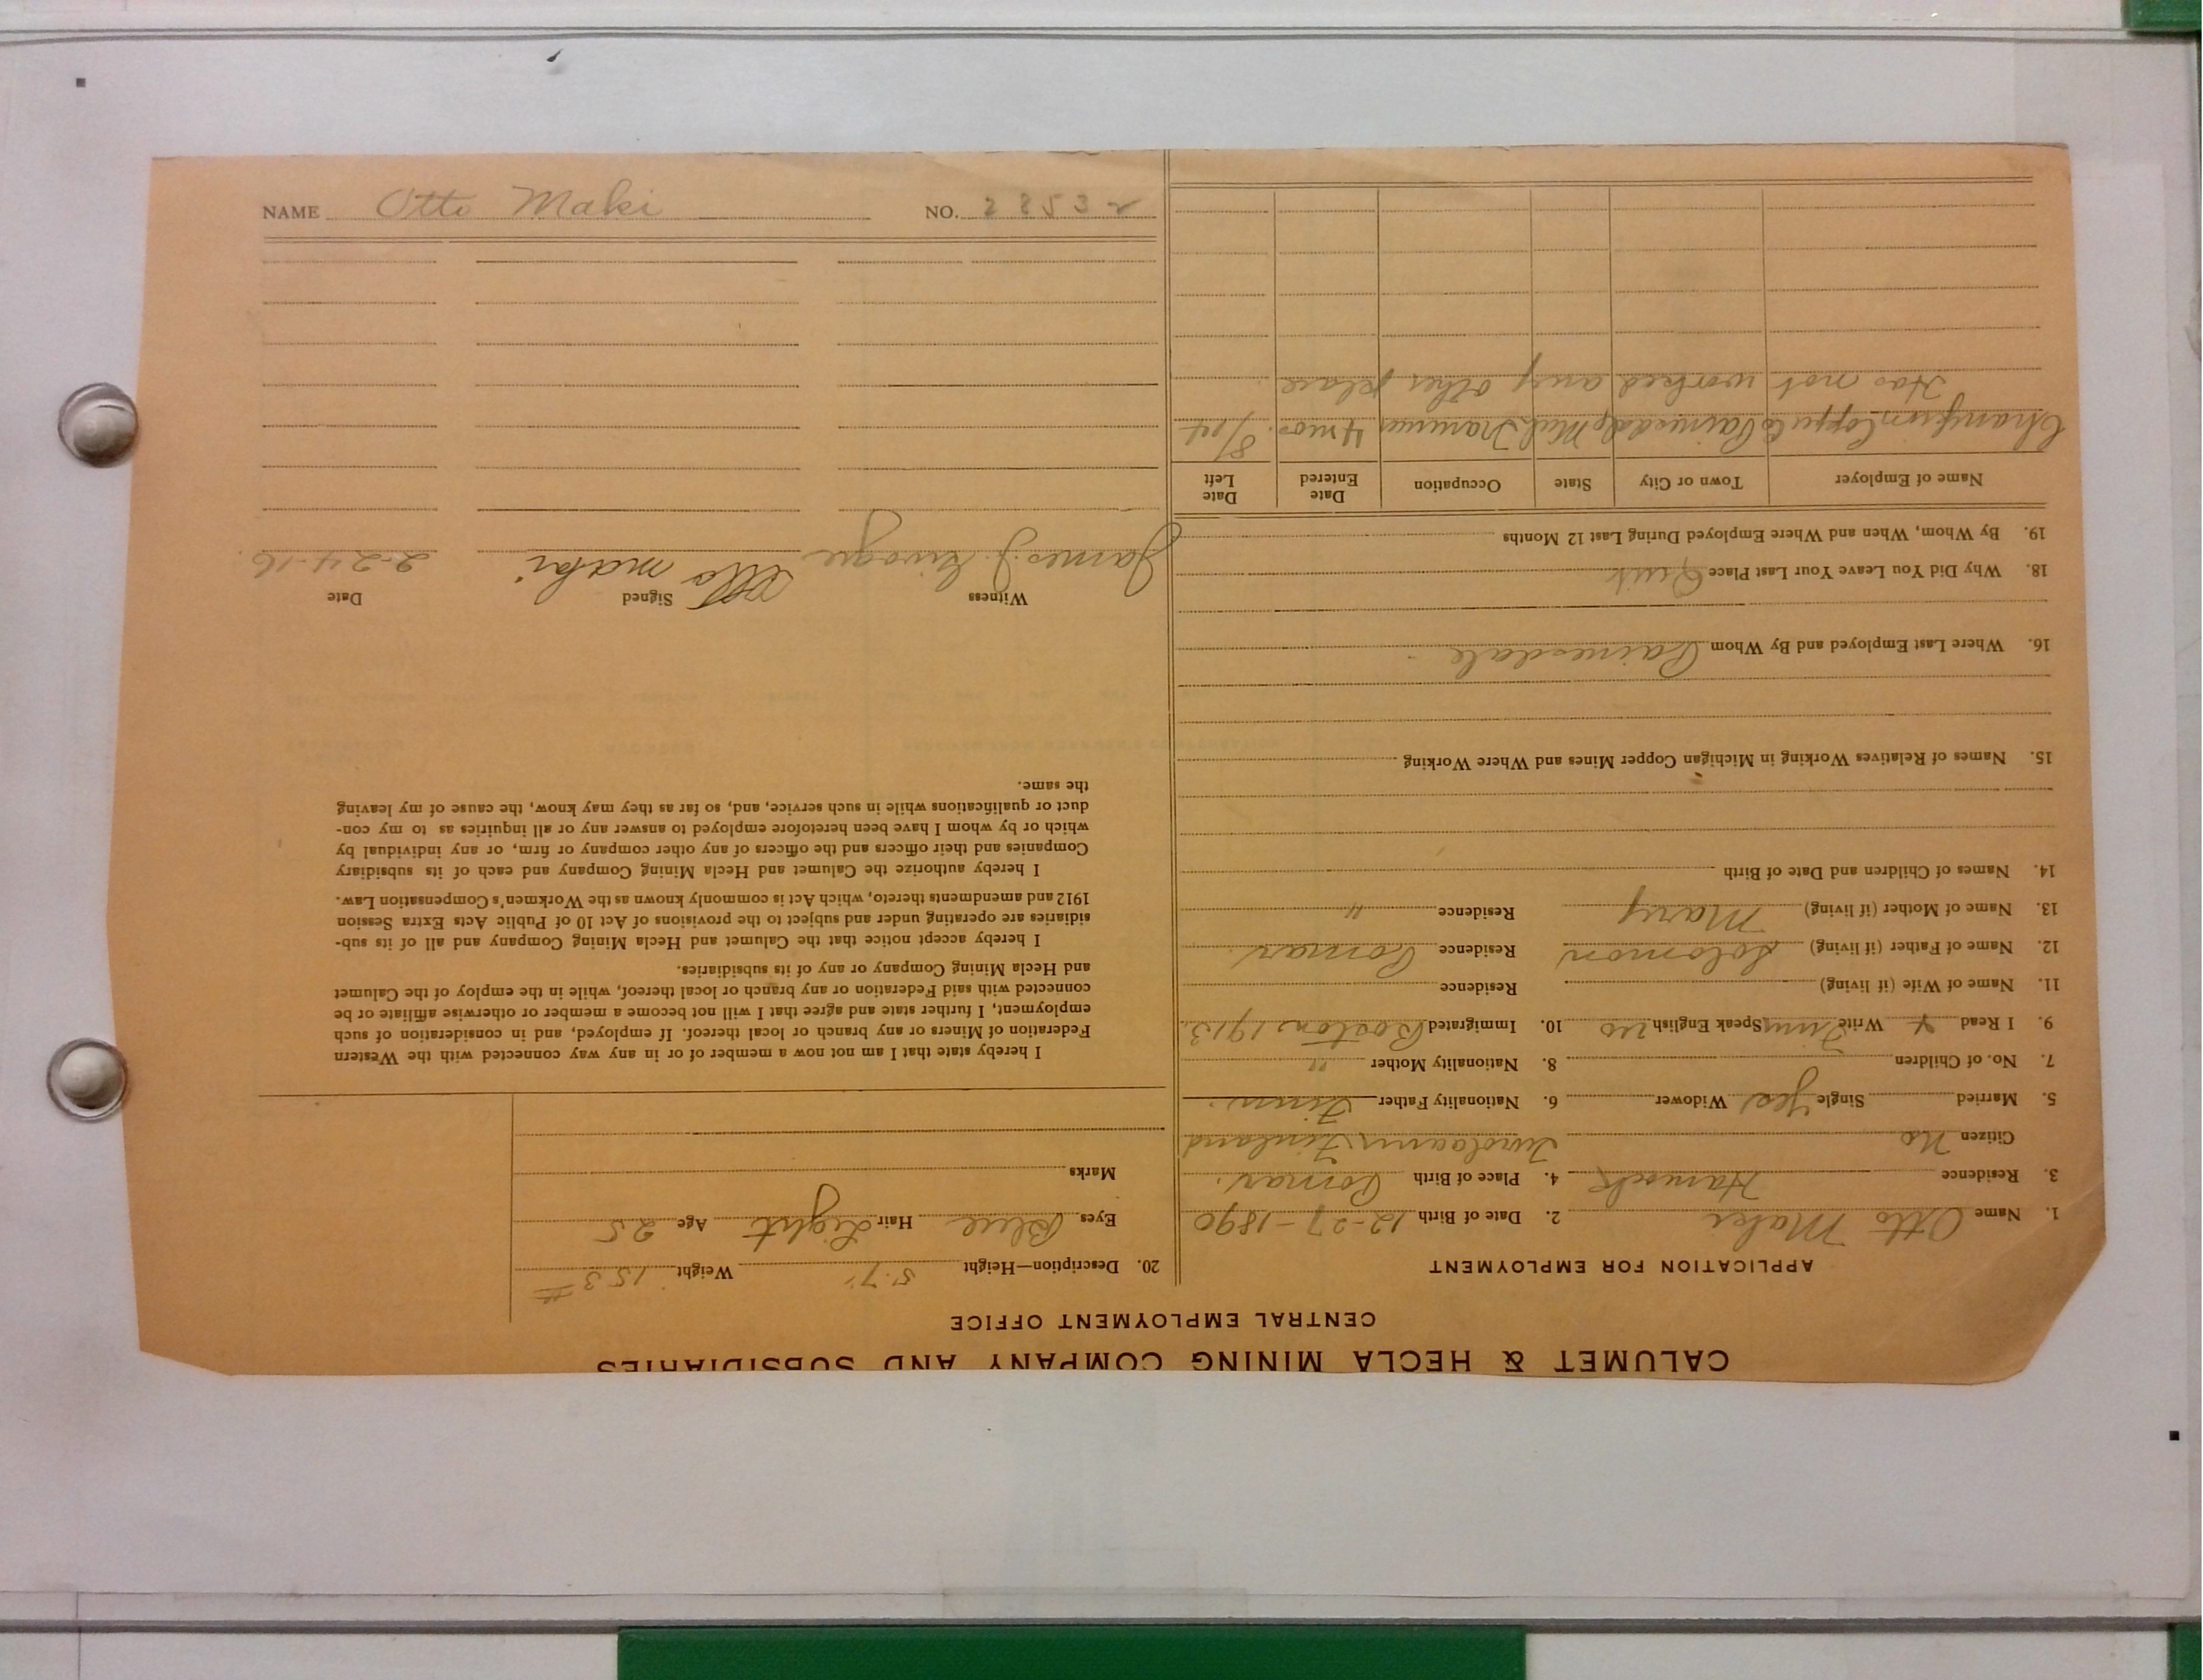 CALUMET & HECLA MINING COMPANY AND SUBSIDIARIES
CENTRAL EMPLOYMENT OFFICE
APPLICATION FOR EMPLOYMENT
1. Name Otto Maki 2. Date of Birth 12-27-1890
3. Residence Hancock 4. Place of Birth
Citizen No Finland
5. Married Single Yes Widower 6. Nationality Father Finn.
7. No. of Children 8. Nationality Mother "
9. I Read & Write Finn Speak English No 10. Immigrated Boston 1913.
11. Name of Wife (if living) Residence
12. Name of Father (if living) Solomon Residence
13. Name of Mother (if living) Mary Residence "
14. Names of Children and Date of Birth
15. Names of Relatives Working in Michigan Copper Mines and Where Working
16. Where Last Employed and By Whom Painesdale
18. Why Did You Leave Your Last Place Quit
19. By Whom, When and Where Employed During Last 12 Months
Name of Employer Town or City State Occupation Date Entered Date Left
Champion Copper Co Painesdale Mich Trammer 4 mos.
Has not worked any other place
20. Description—Height 5.7" Weight 153#
Eyes Blue Hair Light Age 25
Marks
I hereby state that I am not now a member of or in any way connected with the Western
Federation of Miners or any branch or local thereof. If employed, and in consideration of such
employment, I further state and agree that I will not become a member or otherwise affiliate or be
connected with said Federation or any branch or local thereof, while in the employ of the Calumet
and Hecla Mining Company or any of its subsidiaries.
I hereby accept notice that the Calumet and Hecla Mining Company and all of its sub-
sidiaries are operating under and subject to the provisions of Act 10 of Public Acts Extra Session
1912 and amendments thereto, which Act is commonly known as the Workmen's Compensation Law.
I hereby authorize the Calumet and Hecla Mining Company and each of its subsidiary
Companies and their officers and the officers of any other company or firm, or any individual by
which or by whom I have been heretofore employed to answer any or all inquiries as to my con-
duct or qualifications while in such service, and, so far as they may know, the cause of my leaving
the same.
Witness Signed Date
James J. Otto maki 2-24-16.
NAME Otto Maki NO. 28532